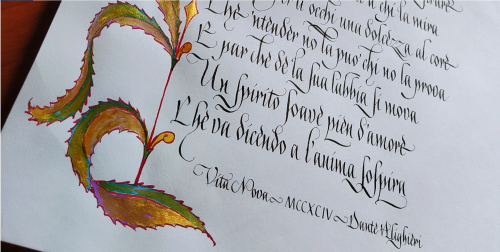 a chi la mira
occhi una dolcezza al core
Che 'ntender no la puo' chi no la prova
E par che de la sua labbia si mova
Un spirito soave pien d'amore
Che va dicendo a l'anima sospira
Vita Nova ~ MCCXCIV ~ Dante Alighieri